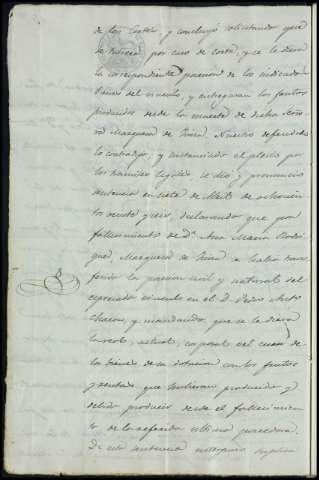 de los Costales, y concluyó solicitando que
se hiciera por caso de corte, y se le diera
la correspondiente posesion de los indicados
Bienes del vinculo, y entregaran los frutos
producidos desde la muerte de dicha Seño
ra Marquesa de Quiros. Nuestro defendido
lo contradijo, y sustanciado el pleito por
los tramites legales se dio y pronunció
sentencia en siete de Abril de ochocien
tos veinte y seis, declarando que por
fallecimiento de D.ª Ana Maria Rodri
guez, Marquesa de se habia trans
ferido la posesion civil y natural del
espresado vinculo en el D. Pedro
Chacon, y mandando, que se le diera
la real, actual, corporal vel cuasi de
los bienes de su dotacion con los frutos
y rentas que hubieran producido y
debido producir desde el fallecimien
to de la referida ultima poseedora.
De esta sentencia interpuso